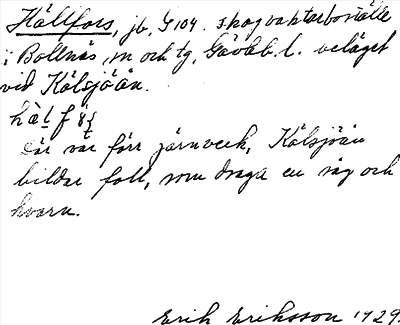 Hällfors, jb, G 104. skogvaktarboställe
i Bollnäs, sn och tg, Gävleb. l. beläget
vid Kälsjöån.
Där var förr järnverk, Kälsjöån
bildar fall, som draga en såg och
kvarn.
Erik Eriksson 1929.